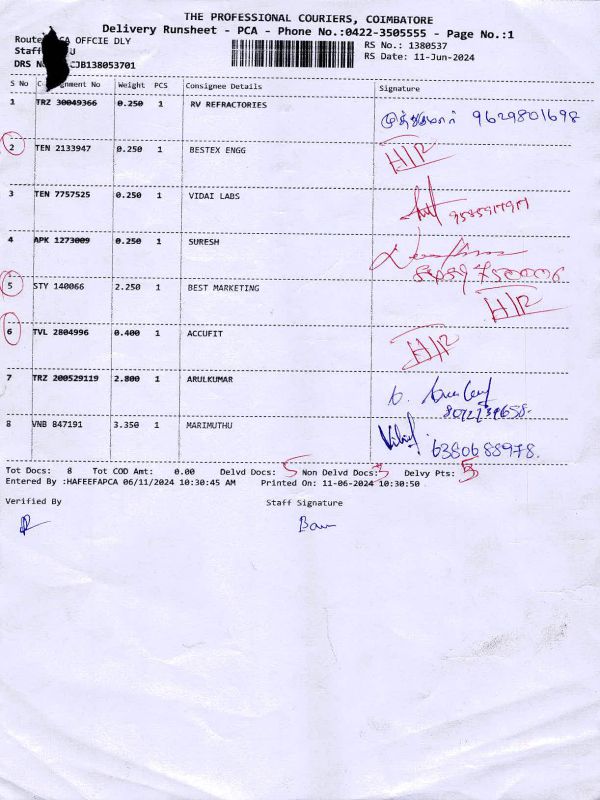 THE PROFESSIONAL COURIERS, COIMBATORE
Delivery Runsheet - PCA - Phone No.:0422-3505555 - Page No.:1
Route CA OFFCIE DLY
RS No.: 1380537
Staff U
RS Date: 11-Jun-2024
DRS N CJB138053701
S No C ignment No Weight PCS Consignee Details Signature
1 TRZ 30049366 0.250 1 RV REFRACTORIES
முத்துகுமார் 9629801698
2 TEN 2133947 0.250 1 BESTEX ENGG H/R
3 TEN 7757525 0.250 1 VIDAI LABS
4 APK 1273009 0.250 1 SURESH
5 STY 140066 2.250 1 BEST MARKETING
H/R
6 TVL 2804996 0.400 1 ACCUFIT H/R
7 TRZ 200529119 2.800 1 ARULKUMAR
8 VNB 847191 3.350 1 MARIMUTHU
6380688978.
Tot Docs: 8 Tot COD Amt: 0.00 Delvd Docs: 5 Non Delvd Docs: 3 Delvy Pts: 5
Entered By :HAFEEFAPCA 06/11/2024 10:30:45 AM Printed On: 11-06-2024 10:30:50
Verified By Staff Signature